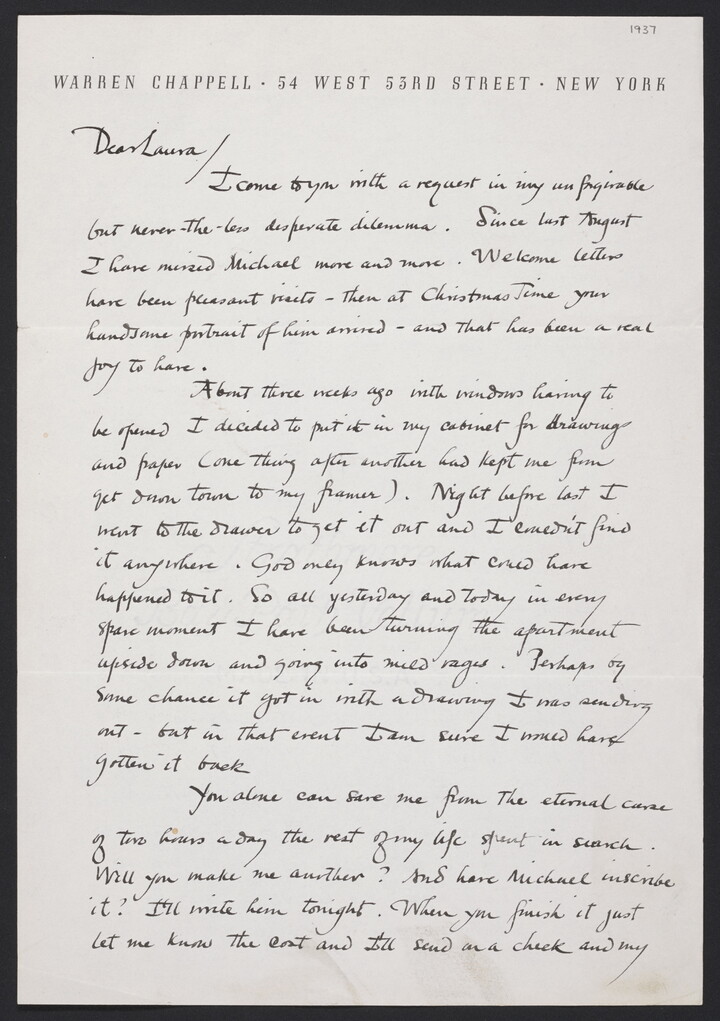 1937
WARREN CHAPPELL · 54 WEST 53RD STREET · NEW YORK
Dear Laura /
I come to you with a request in my unforgivable
but never-the-less desperate dilemma. Since last August
I have missed Michael more and more. Welcome letters
have been pleasant visits – then at Christmas Time your
handsome portrait of him arrived – and that has been a real
joy to have.
About three weeks ago with windows having to
be opened I decided to put it in my cabinet for drawings
and paper (one thing after another had kept me from
get down town to my framer). Night before last I
went to the drawer to get it out and I couldn't find
it anywhere. God only knows what could have
happened to it. So all yesterday and today in every
spare moment I have been turning the apartment
upside down and going into mild rages. Perhaps by
some chance it got in with a drawing I was sending
out – but in that event I am sure I would have
gotten it back
You alone can save me from the eternal curse
of two hours a day the rest of my life spent in search.
Will you make me another? And have Michael inscribe
it? I'll write him tonight. When you finish it just
let me know the cost and I'll send on a check and my